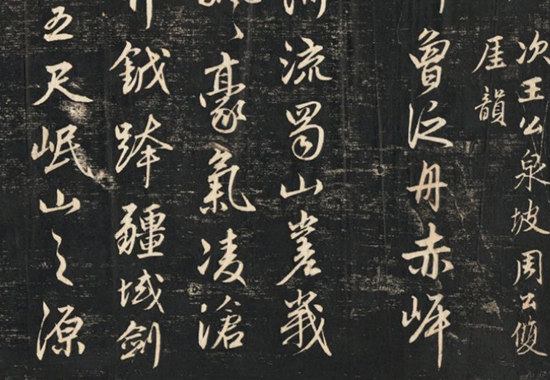 次王公泉坡周公雙
厓韻
曾泛舟赤岸
流蜀山嵳峩
豪氣凌滄
鉞跨疆域劍
五尺岷山之源